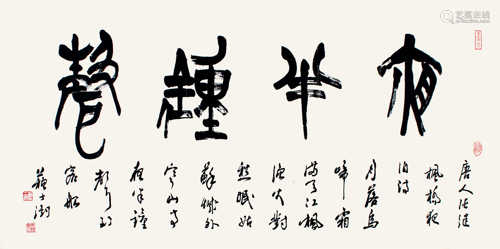 夜半鐘聲
唐人張継
楓橋夜
泊詩
月落烏
啼霜
滿天江楓
漁火對
愁眠姑
蘇城外
寒山寺
夜半鐘
聲到
客船
蘇士澍